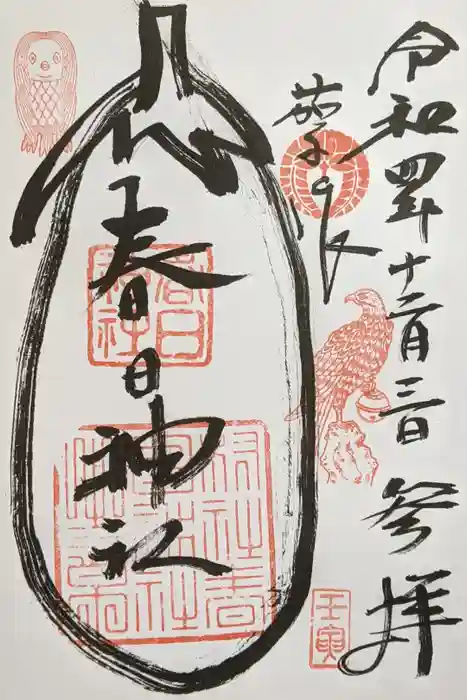 令和四年十二月三日 参拝
茄子の
春日神社
春日神社
壬寅